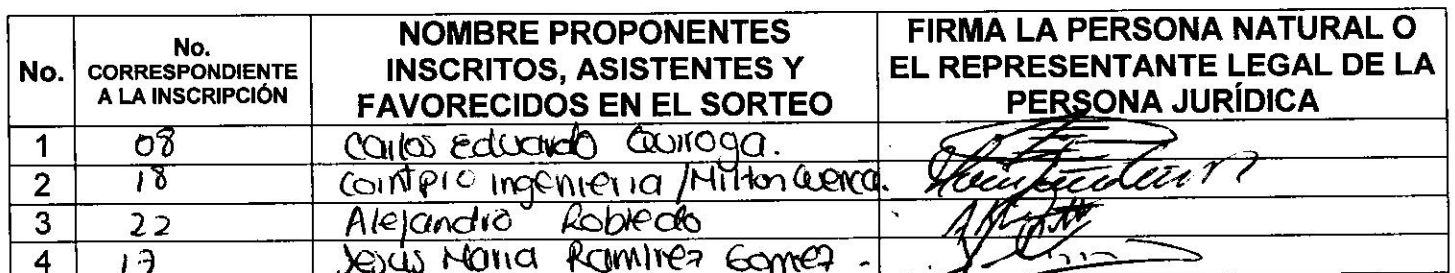 No. | No. CORRESPONDIENTE A LA INSCRIPCIÓN | NOMBRE PROPONENTES INSCRITOS, ASISTENTES Y FAVORECIDOS EN EL SORTEO | FIRMA LA PERSONA NATURAL O EL REPRESENTANTE LEGAL DE LA PERSONA JURÍDICA
1 08 Carlos Eduardo Quiroga.
2 18 ingenieria / Milton Cuenca.
3 22 Alejandro Robledo
4 Jesus Maria Ramirez Gomez.